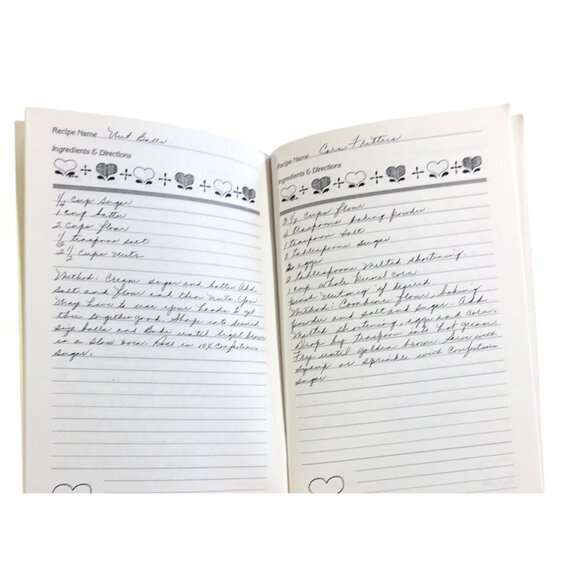 Recipe Name Nut Balls
Ingredients & Directions
1/4 Cup Sugar
1 cup butter
2 Cups flour
1/2 teaspoon salt
2 1/2 Cups Nuts
Method: Cream sugar and butter. Add
salt and flour and then Nuts. You
May have to use your hands to get
this together good. Shape into desired
size balls and Bake until light brown
in a slow oven. Roll in 10X Confectioners
Sugar.
Recipe Name Corn Fritters
Ingredients & Directions
3 1/2 Cups flour
4 teaspoons baking powder
1 teaspoon salt
tablespoons sugar
2 eggs
2 tablespoons Melted shortening
1 cup whole Kernel corn
pinch Nutmeg if desired
Method: Combine flour, baking
powder and salt and sugar. Add
Melted shortening, eggs and corn.
Drop by teaspoon into hot grease
Fry until golden brown. Serve with
Syrup or sprinkle with Confectioners
sugar